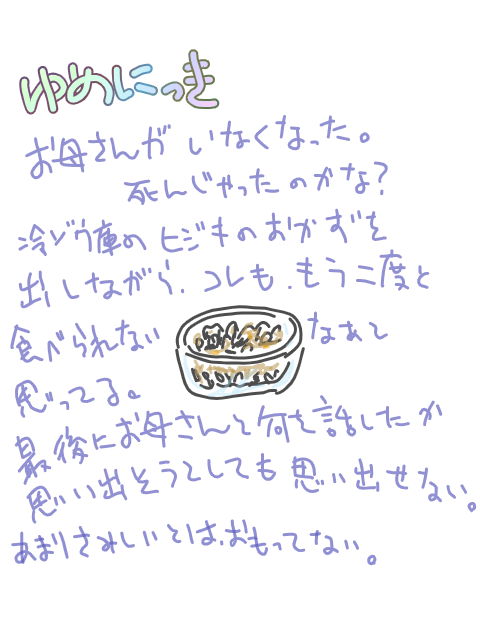 ゆめにっき
お母さんがいなくなった。
死んじゃったのかな?
冷ゾウ庫のヒジキのおかずを
出しながら、コレも、もう二度と
食べられないなぁと
思ってる。
最後にお母さんと何を話したか
思い出そうとしても思い出せない。
あまりさみしいとは、おもってない。